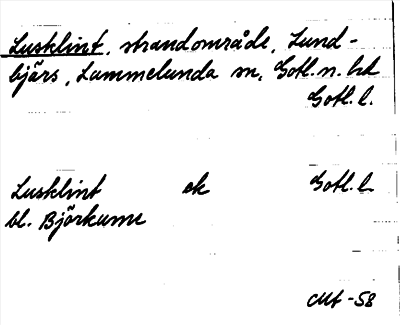 Lusklint, strandområde, Lund-
bjärs, Lummelunda sn, Gotl. n. hd
Gotl. l.
Lusklint ek Gotl. l.
bl. Björkume
CMt -58